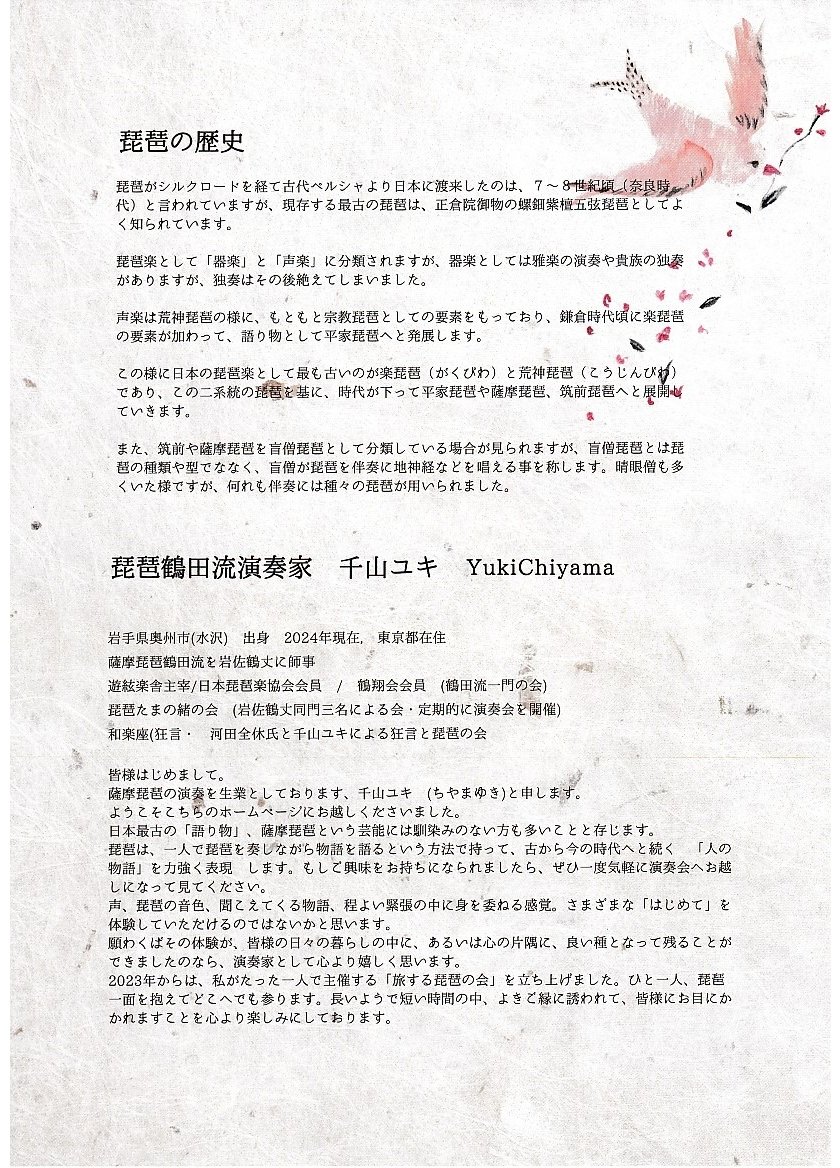 琵琶の歴史
琵琶がシルクロードを経て古代ペルシャより日本に渡来したのは、７～８世紀頃（奈良時
代）と言われていますが、現存する最古の琵琶は、正倉院御物の螺鈿紫檀五弦琵琶としてよ
く知られています。
琵琶楽として「器楽」と「声楽」に分類されますが、器楽としては雅楽の演奏や貴族の独奏
がありますが、独奏はその後絶えてしまいました。
声楽は荒神琵琶の様に、もともと宗教琵琶としての要素をもっており、鎌倉時代頃に楽琵琶
の要素が加わって、語り物として平家琵琶へと発展します。
この様に日本の琵琶楽として最も古いのが楽琵琶（がくびわ）と荒神琵琶（こうじんびわ）
であり、この二系統の琵琶を基に、時代が下って平家琵琶や薩摩琵琶、筑前琵琶へと展開し
ていきます。
また、筑前や薩摩琵琶を盲僧琵琶として分類している場合が見られますが、盲僧琵琶とは琵
琶の種類や型でななく、盲僧が琵琶を伴奏に地神経などを唱える事を称します。晴眼僧も多
くいた様ですが、何れも伴奏には種々の琵琶が用いられました。
琵琶鶴田流演奏家　千山ユキ　YukiChiyama
岩手県奥州市(水沢)　出身　2024年現在,　東京都在住
薩摩琵琶鶴田流を岩佐鶴丈に師事
遊絃楽舎主宰/日本琵琶楽協会会員　/　鶴翔会会員　(鶴田流一門の会)
琵琶たまの緒の会　(岩佐鶴丈同門三名による会・定期的に演奏会を開催)
和楽座(狂言・　河田全休氏と千山ユキによる狂言と琵琶の会
皆様はじめまして。
薩摩琵琶の演奏を生業としております、千山ユキ　(ちやまゆき)と申します。
ようこそこちらのホームページにお越しくださいました。
日本最古の「語り物」、薩摩琵琶という芸能には馴染みのない方も多いことと存じます。
琵琶は、一人で琵琶を奏しながら物語を語るという方法で持って、古から今の時代へと続く　「人の
物語」を力強く表現　します。もしご興味をお持ちになられましたら、ぜひ一度気軽に演奏会へお越
しになって見てください。
声、琵琶の音色、聞こえてくる物語、程よい緊張の中に身を委ねる感覚。さまざまな「はじめて」を
体験していただけるのではないかと思います。
願わくばその体験が、皆様の日々の暮らしの中に、あるいは心の片隅に、良い種となって残ることが
できましたのなら、演奏家として心より嬉しく思います。
2023年からは、私がたった一人で主催する「旅する琵琶の会」を立ち上げました。ひと一人、琵琶
一面を抱えてどこへでも参ります。長いようで短い時間の中、よきご縁に誘われて、皆様にお目にか
かれますことを心より楽しみにしております。